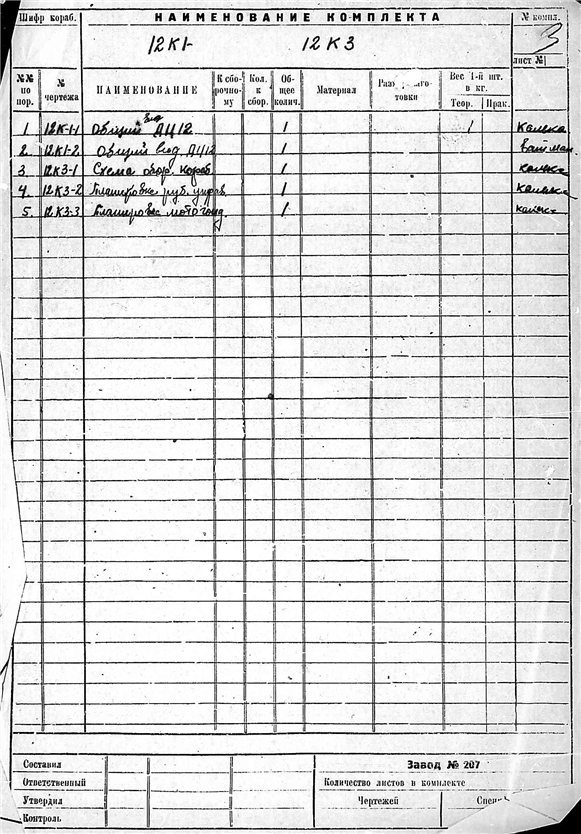 Шифр кораб.
НАИМЕНОВАНИЕ КОМПЛЕКТА
№ компл.
12К1- 12К3
3
лист №
№№ по пор.
№ чертежа
НАИМЕНОВАНИЕ
К сбо-рочно-му
Кол. к сбор.
Об-щее колич.
Материал
Раз заго-товки
Вес 1-й шт. в кг.
Теор. Прак.
1 12К-1-1 Общий вид ДЦ12 1 1 калька
2. 12К1-2 Общий вид ДЦ12 1 Ватман
3. 12К3-1 Схема обор. кораб. 1 калька
4. 12К3-2 руб. управ. 1 калька
5. 12К3-3 мотогонд. 1 калька
Составил
Завод № 207
Ответственный
Количество листов в комплекте
Утвердил
Чертежей
Контроль